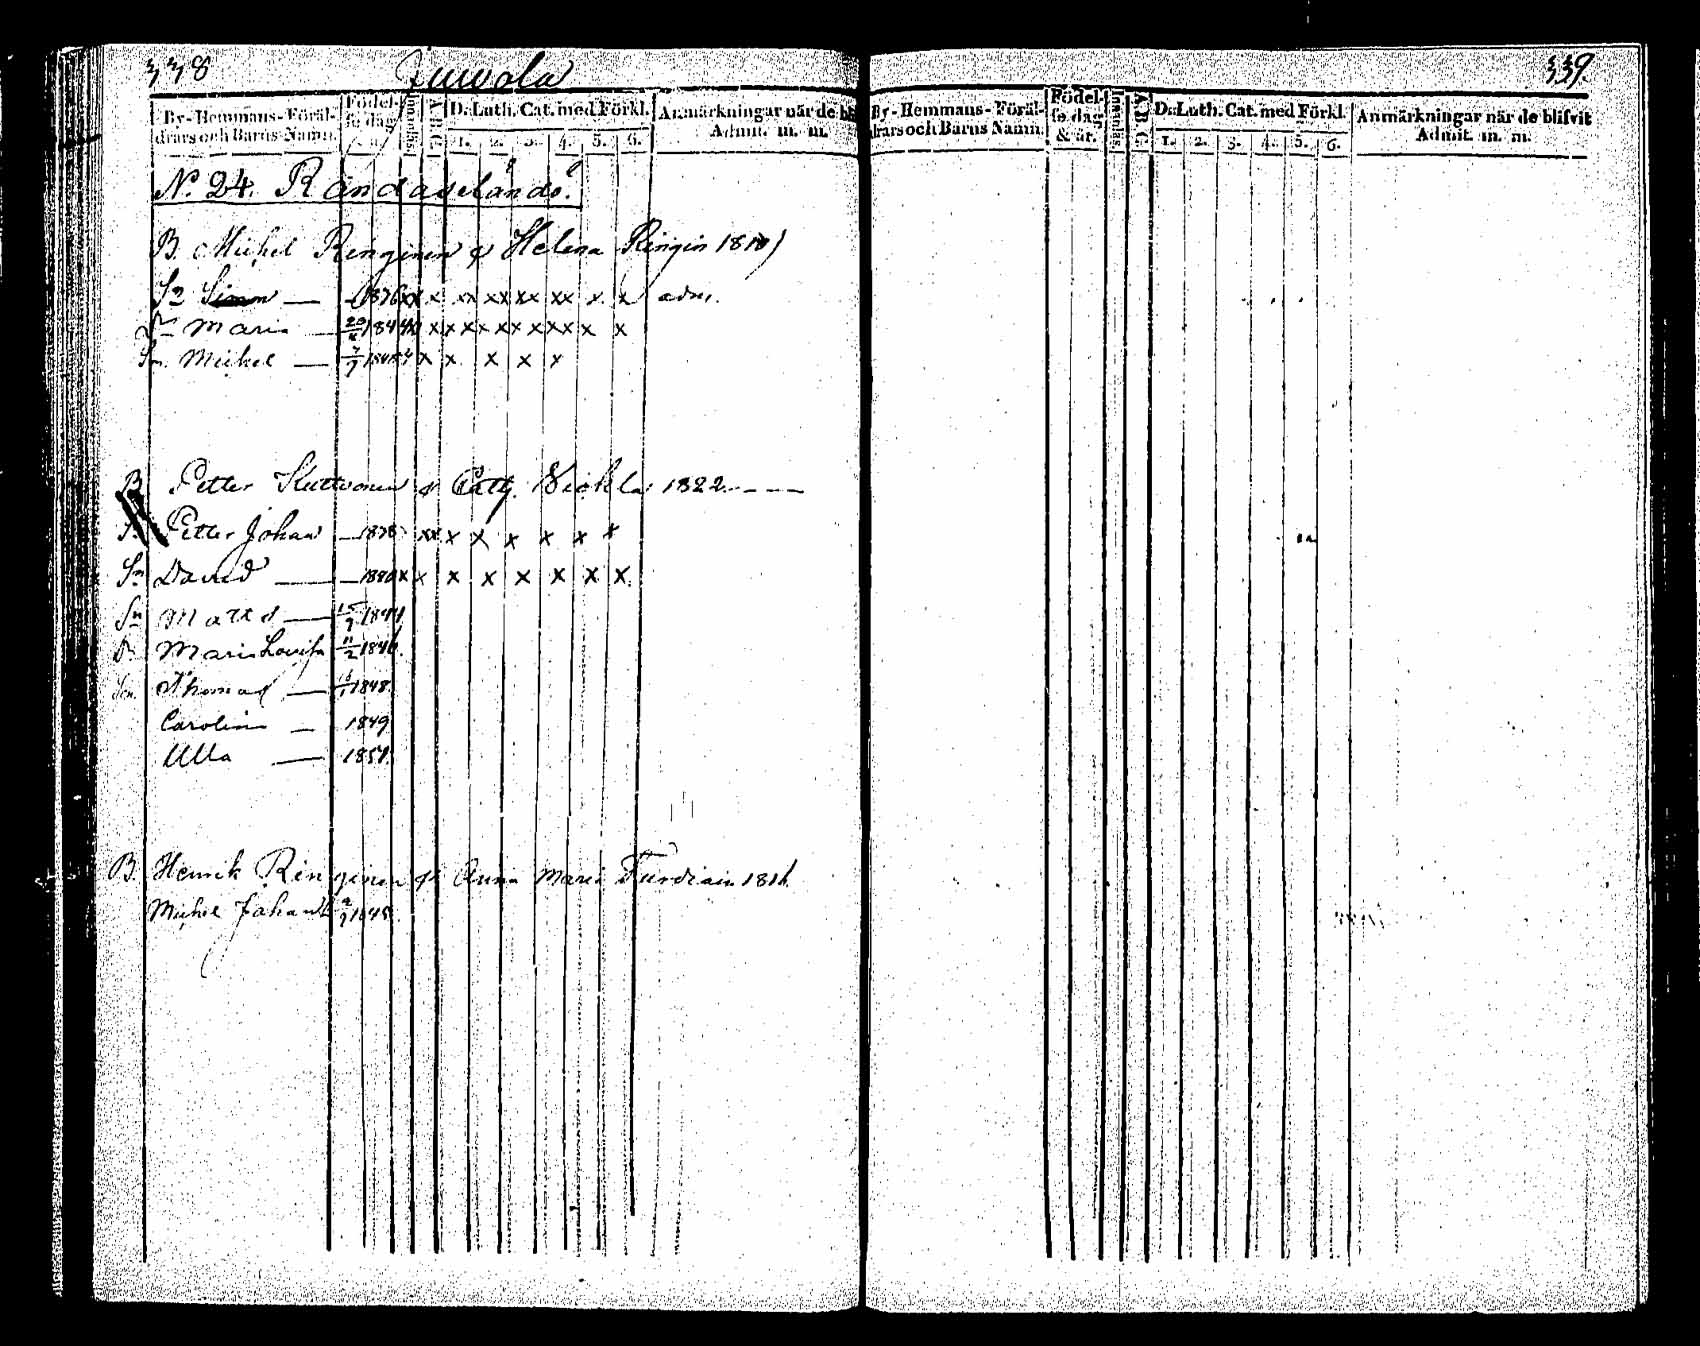 338
Juwola
By-Hemmans-Föräl-
drars och Barns Namn.
Födel-
se dag
Innanläs
A B C
D. Luth. Cat. med Förkl.
1. 2. 3. 4. 5. 6.
Anmärkningar när de bli
Admit. m. m.
No. 24.
B. Michel Ringinen & Helena Ringin 1810)
Sn Simon — 1836 xx x xx xx xx xx x x adm.
Dr Maria — 1844 x x x x x x x x x x x x
Sn. Michel — x x x x x
B. Petter Kuttvonen & Cath. 1822 - - - -
Sn Petter Johan — 1838 xx x x x x x x
Sn David — 1840 x x x x x x x x
Sn Matts — 15/9 1844
Dr Maria Lovisa 11/2 1846
Sn Thomas — 1848
Carolin — 1849
Ulla — 1851
B. Henrik Ringinen & Anna Maria 1816
Michel Johan
339.
By-Hemmans-Föräl-
drars och Barns Namn.
Födel-
se dag
& år.
Innanläs
A B C
D. Luth. Cat. med Förkl.
1. 2. 3. 4. 5. 6.
Anmärkningar när de blifvit
Admit. m. m.